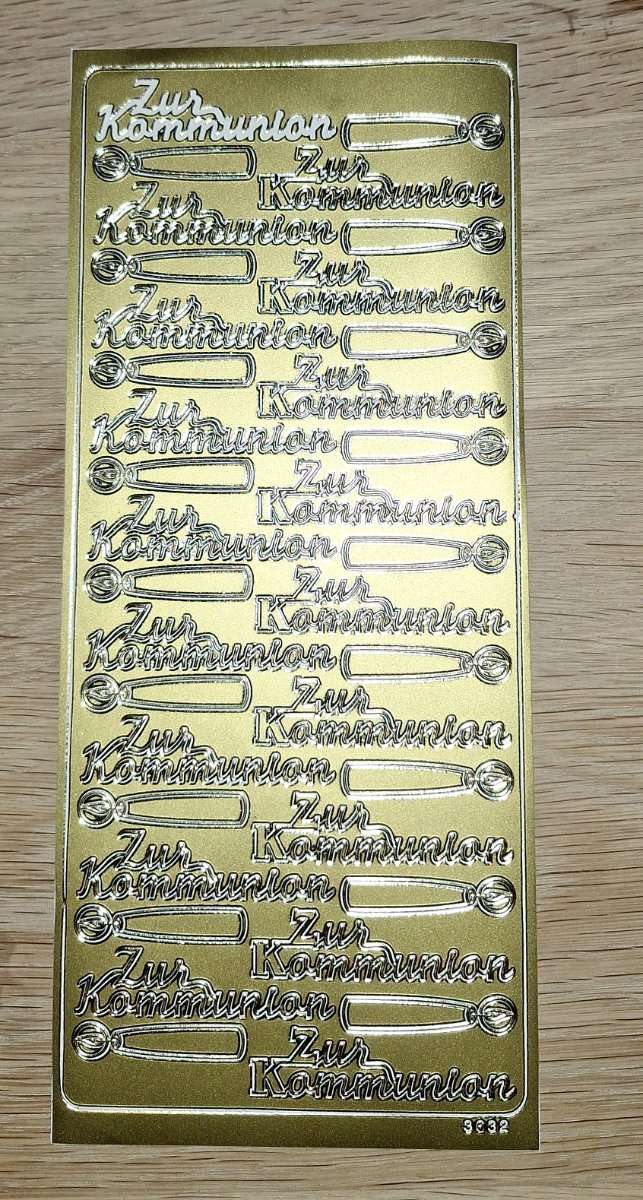 Zur
Kommunion
Zur
Kommunion
Zur
Kommunion
Zur
Kommunion
Zur
Kommunion
Zur
Kommunion
Zur
Kommunion
Zur
Kommunion
Zur
Kommunion
Zur
Kommunion
Zur
Kommunion
Zur
Kommunion
Zur
Kommunion
Zur
Kommunion
Zur
Kommunion
Zur
Kommunion
Zur
Kommunion
Zur
Kommunion
3032